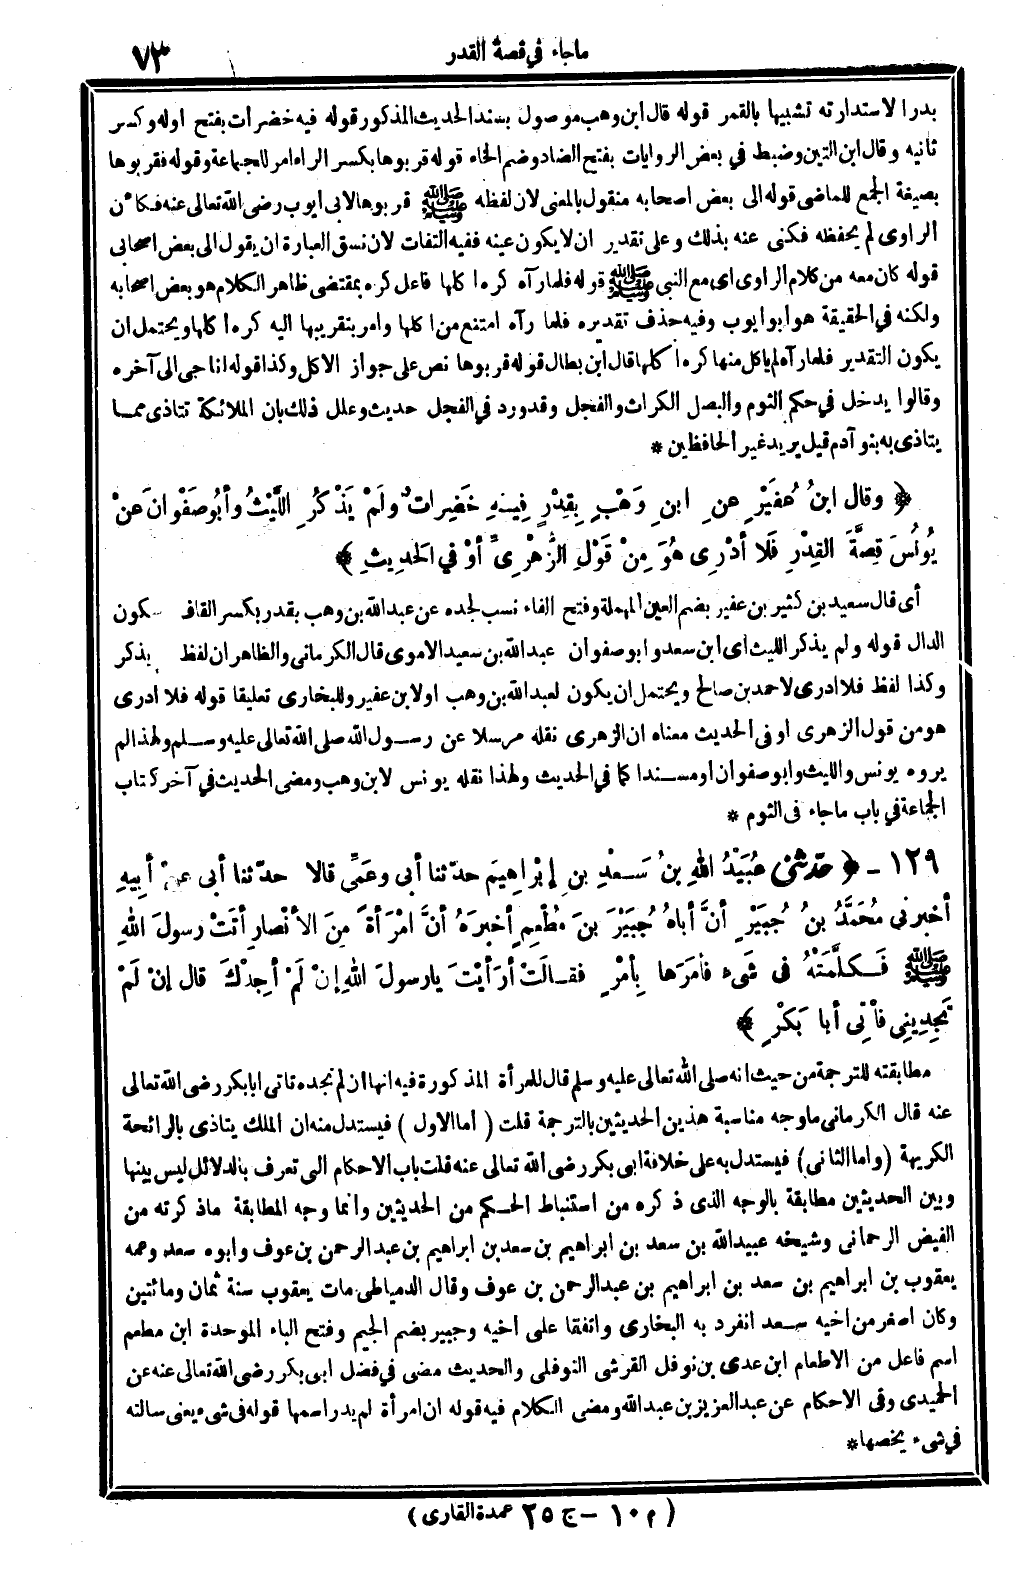 ماجاء في قصة القدر
٧٣
بدرا لاستدارته تشبيها بالقمر قوله قال ابن وهب موصول بسند الحديث المذكور قوله فيه خضرات بفتح اوله وكسر
ثانيه وقال ابن التين وضبط في بعض الروايات بفتح الضاد وضم الخاء قوله قربوها بكسر الراء امر للجماعة وقوله فقربوها
بصيغة الجمع للماضى قوله الى بعض اصحابه منقول بالمعنى لان لفظه ﷺ قربوها لابى ايوب رضى الله تعالى عنه فكأن
الراوى لم يحفظه فكنى عنه بذلك وعلى تقدير ان لا يكون عينه ففيه التفات لان نسق العبارة ان يقول الى بعض اصحابى
قوله كان معه من كلام الراوى اى مع النبى ﷺ قوله فلما رآه كره اكلها فاعل كره بمقتضى ظاهر الكلام هو بعض اصحابه
ولكنه في الحقيقة هو ابو ايوب وفيه حذف تقديره فلما رآه امتنع من اكلها وامر بتقريبها اليه كره اكلها ويحتمل ان
يكون التقدير فلما رآه لم ياكل منها كره اكلها قال ابن بطال قوله قربوها نص على جواز الاكل وكذا قوله اناجى الى آخره
وقالوا يدخل في حكم الثوم والبصل الكراث والفجل وقدورد في الفجل حديث وعلل ذلك بان الملائكة تتاذى مما
يتاذى به بنو آدم قيل يريد غير الحافظين *
﴿ وقال ابنُ عُفَيْرٍ عنِ ابنِ وَهْبٍ بِقِدْرٍ فِيهِ خَضِرَاتٌ ولَمْ يَذْكُرِ اللَّيْثُ وأبُو صَفْوَانَ عَنْ
يُونُسَ قِصَّةَ القِدْرِ فَلا أدْرِى هُوَ مِنْ قَوْلِ الزُّهْرِىِّ أوْ في الحَدِيثِ ﴾
أى قال سعيد بن كثير بن عفير بضم العين المهملة وفتح الفاء نسب لجده عن عبدالله بن وهب بقدر بكسر القاف سكون
الدال قوله ولم يذكر الليث اى ابن سعد وابو صفوان عبدالله بن سعيد الاموى قال الكرمانى والظاهر ان لفظ يذكر
وكذا لفظ فلا ادرى لاحمد بن صالح ويحتمل ان يكون لعبدالله بن وهب اولابن عفير وللبخارى تعليقا قوله فلا ادرى
هو من قول الزهرى اوفى الحديث معناه ان الزهرى نقله مرسلا عن رسول الله صلى الله تعالى عليه وسلم ولهذا لم
يروه يونس والليث وابو صفوان او مسندا كما في الحديث ولهذا نقله يونس لابن وهب ومضى الحديث في آخر كتاب
الجماعة في باب ماجاء فى الثوم *
١٢٩ - ﴿ حدّثنى عُبَيْدُ اللهِ بنُ سَعْدِ بنِ إبْراهِيمَ حدّثنا أبى وعَمِّى قالا حدّثنا أبى عنْ أبِيهِ
أخبرنى مُحَمَّدُ بنُ جُبَيْرٍ أنَّ أباهُ جُبَيْرَ بنَ مُطْعِمٍ أخبرَهُ أنَّ امْرَأةً مِنَ الأنْصارِ أتَتْ رسولَ اللهِ
ﷺ فَكَلَّمَتْهُ فى شَىْءٍ فأمَرَها بِأمْرٍ فقالَتْ أرَأيْتَ يارسولَ اللهِ إنْ لَمْ أجِدْكَ قال إنْ لَمْ
تَجِدِينِى فأْتِى أبا بَكْرٍ ﴾
مطابقته للترجمة من حيث انه صلى الله تعالى عليه وسلم قال للمرأة المذكورة فيه انها ان لم تجده تاتى ابابكر رضى الله تعالى
عنه قال الكرمانى ما وجه مناسبة هذين الحديثين بالترجمة قلت ( اما الاول ) فيستدل منه ان الملك يتاذى بالرائحة
الكريهة (واما الثانى) فيستدل به على خلافة ابى بكر رضى الله تعالى عنه قلت باب الاحكام التى تعرف بالدلائل ليس بينها
وبين الحديثين مطابقة بالوجه الذى ذكره من استنباط الحكم من الحديثين وانما وجه المطابقة ماذكرته من
الفيض الرحمانى وشيخه عبيدالله بن سعد بن ابراهيم بن سعد بن ابراهيم بن عبد الرحمن بن عوف وابوه سعد وعمه
يعقوب بن ابراهيم بن سعد بن ابراهيم بن عبدالرحمن بن عوف وقال الدمياطى مات يعقوب سنة ثمان ومائتين
وكان اصغر من اخيه سعد انفرد به البخارى واتفقا على اخيه وجبير بضم الجيم وفتح الباء الموحدة ابن مطعم
اسم فاعل من الاطعام ابن عدى بن نوفل القرشى النوفلى والحديث مضى في فضل ابى بكر رضى الله تعالى عنه عن
الحميدى وفى الاحكام عن عبد العزيز بن عبدالله ومضى الكلام فيه قوله ان امرأة لم يدر اسمها قوله فى شىء يعنى سالته
في شىء يخصها *
( م ١٠ - ج ٢٥ عمدة القارى )